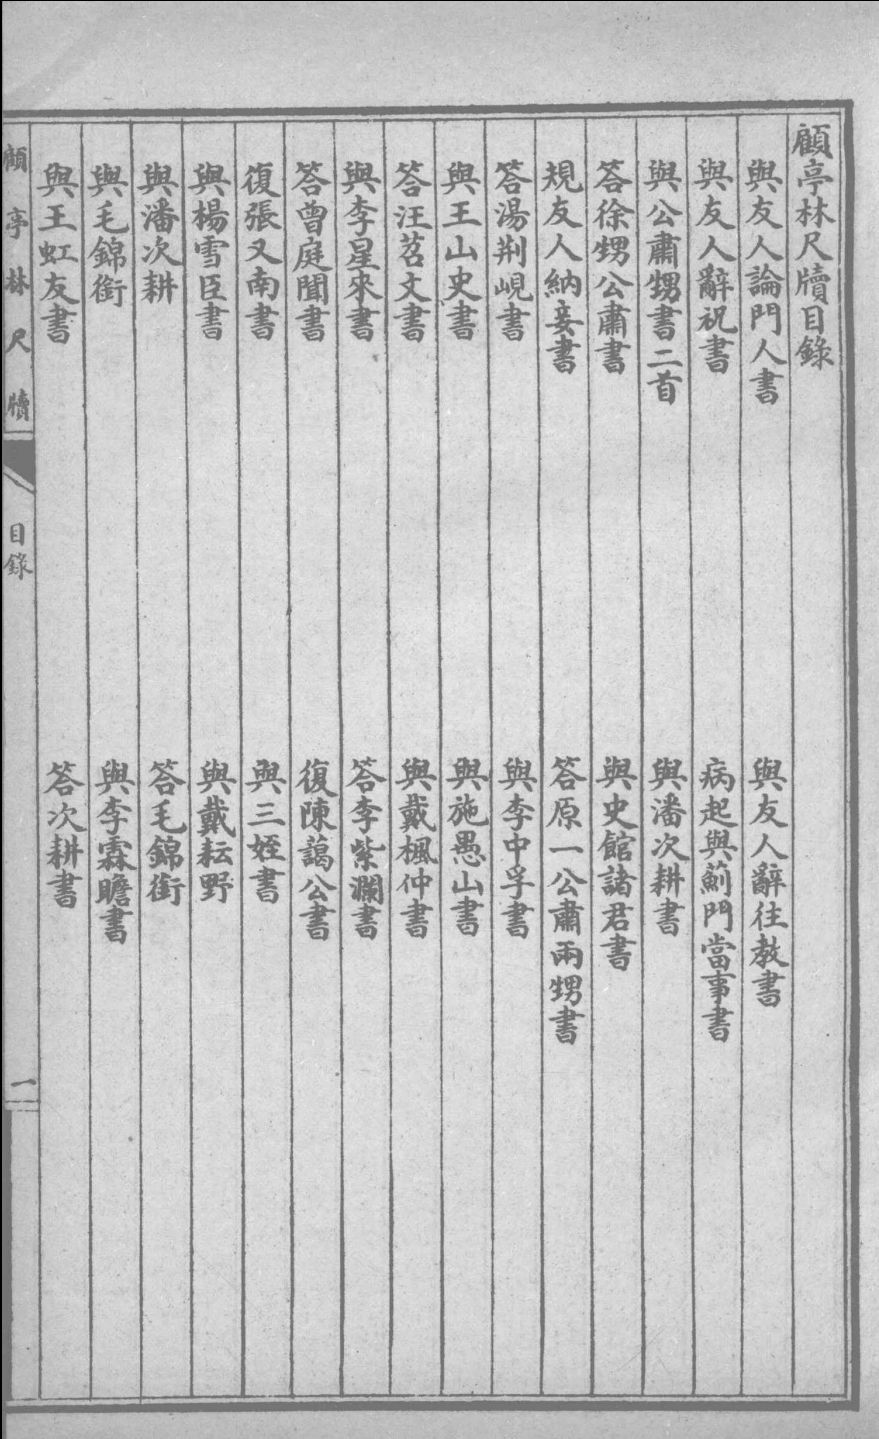 顧亭林尺牘目錄
與友人論門人書
與友人辭往教書
與友人辭祝書
病起與薊門當事書
與公肅甥書二首
與潘次耕書
答徐甥公肅書
與史館諸君書
規友人納妾書
答原一公肅兩甥書
答湯荆峴書
與李中孚書
與王山史書
與施愚山書
答汪苕文書
與戴楓仲書
與李星來書
答李紫瀾書
答曾庭聞書
復陳藹公書
復張又南書
與三姪書
與楊雪臣書
與戴耘野
與潘次耕
答毛錦銜
與毛錦銜
與李霖瞻書
與王虹友書
答次耕書
顧亭林尺牘
目錄
一